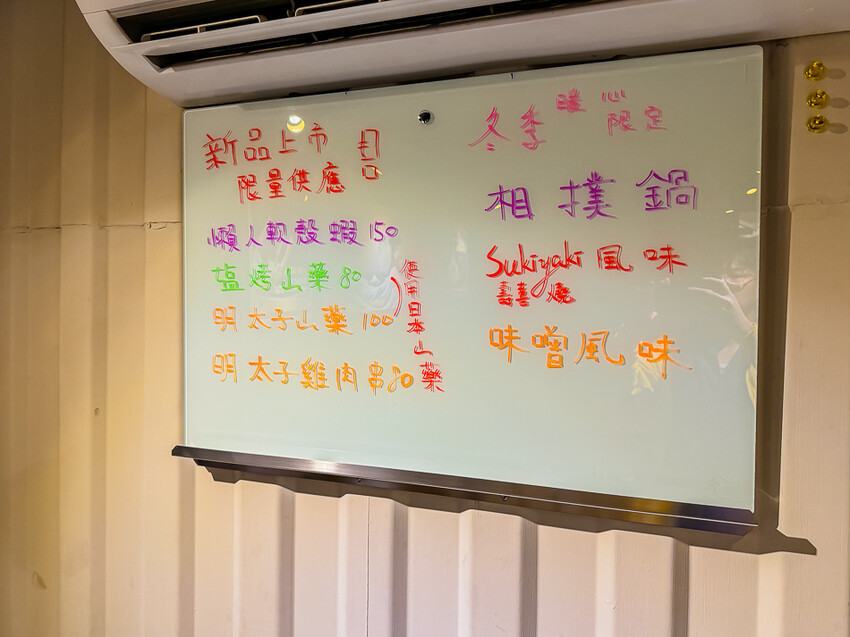 新品上市
限量供應
懶人軟殼蝦 150
塩烤山藥 80
明太子山藥 100
明太子雞肉串 80
使用日本山藥
冬季暖心限定
相撲鍋
Sukiyaki 風味
壽喜燒
味噌風味